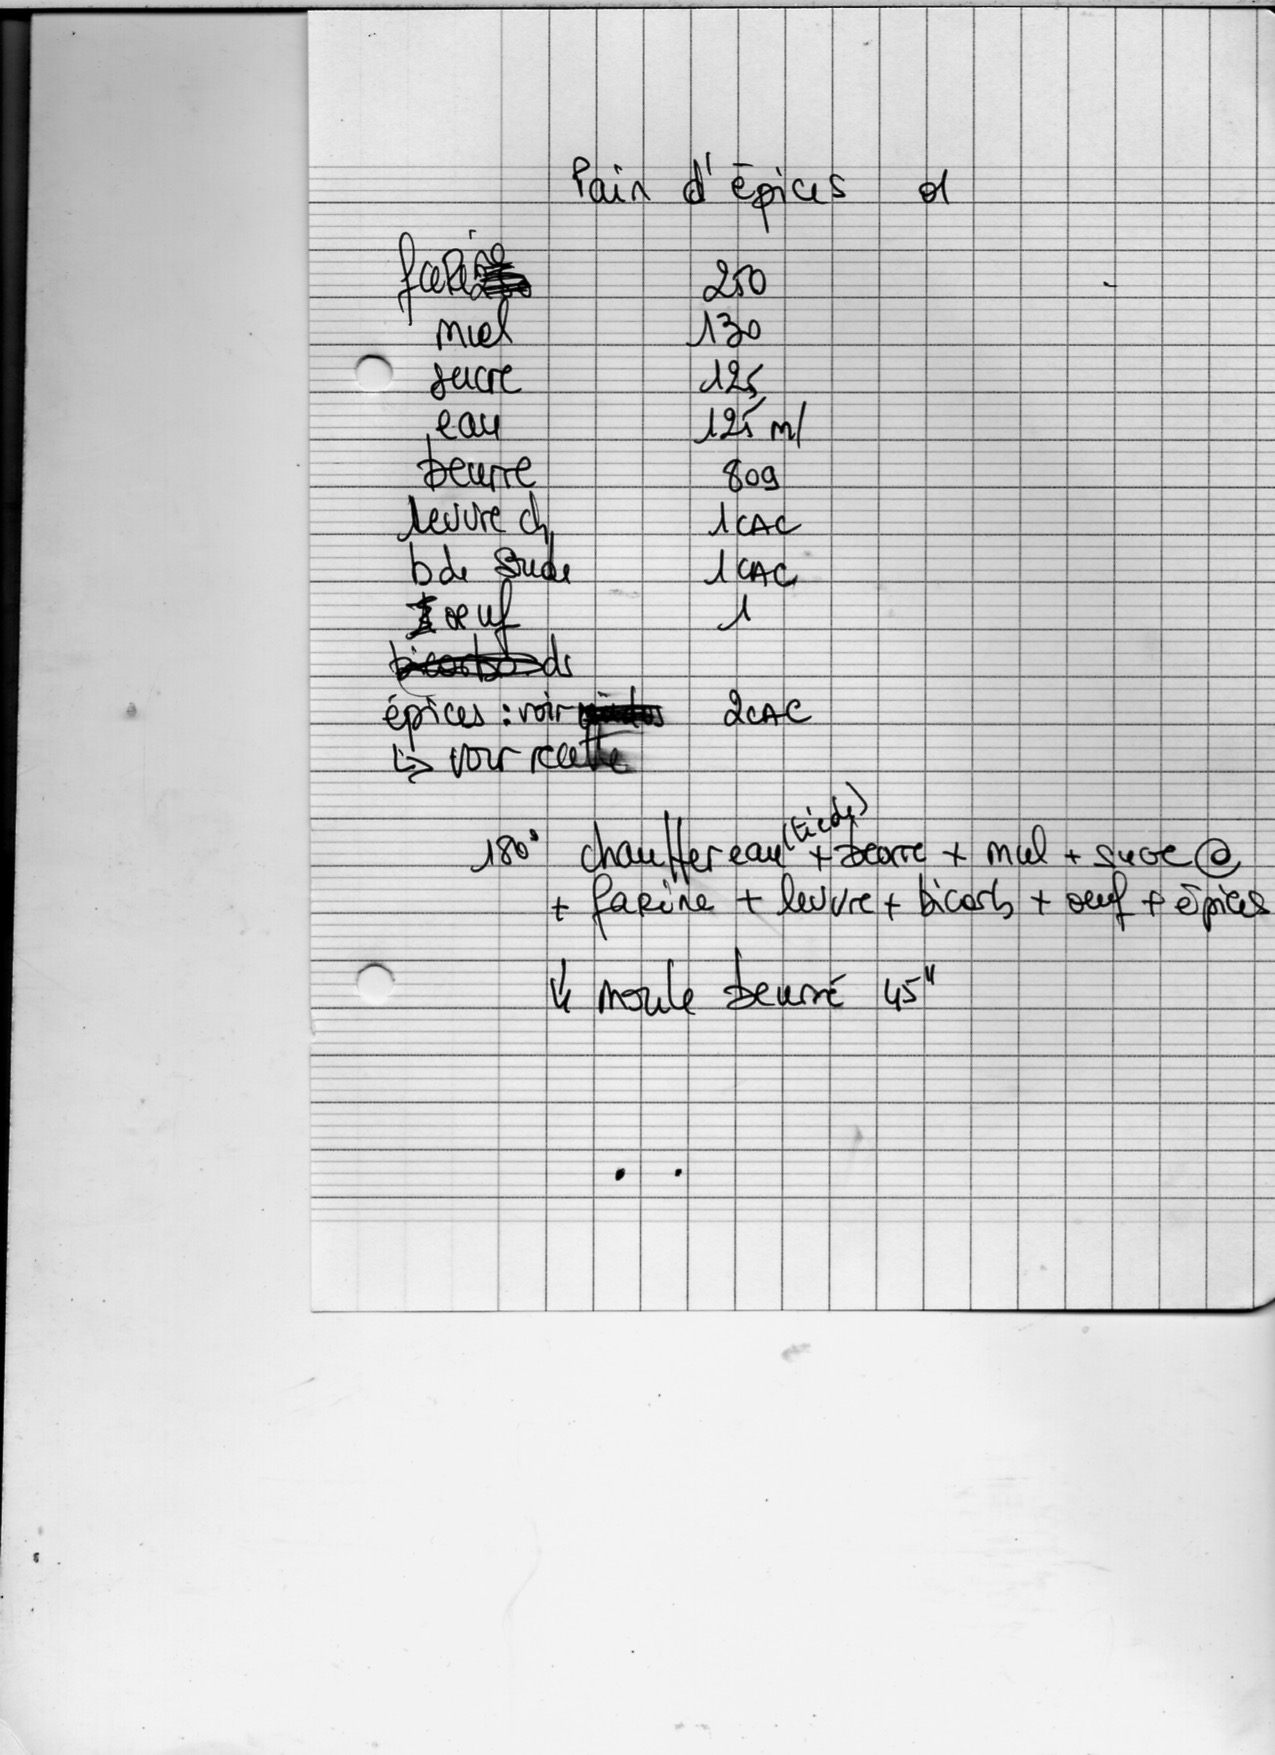 Pain d'épices
farine 250
miel 130
sucre 125
eau 125 ml
beurre 80g
levure ch 1 CAC
b de soude 1 CAC
oeuf 1
de
épices : voir 2 CAC
↳ voir recette
180° chauffer eau (tiède) + beurre + miel + sucre @
+ farine + levure + bicarb + oeuf + épices
↳ moule beurré 45"